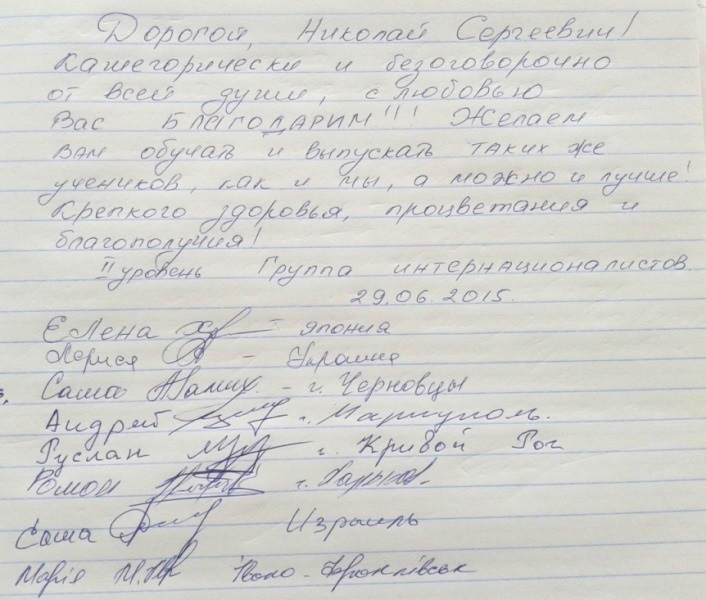 Дорогой, Николай Сергеевич!
Категорически и безоговорочно
от всей души, с любовью
Вас БЛАГОДАРИМ!!! Желаем
вам обучать и выпускать таких же
учеников, как и мы, а можно и лучше!
Крепкого здоровья, процветания и
благополучия!
II уровень Группа интернационалистов.
29.06.2015.
Елена - Япония
Лариса - Украина
Саша - г. Черновцы
Андрей г. Мариуполь.
Руслан г. Кривой Рог
Роман г. Харьков.
Саша Израиль
Марія Івано-Франківськ